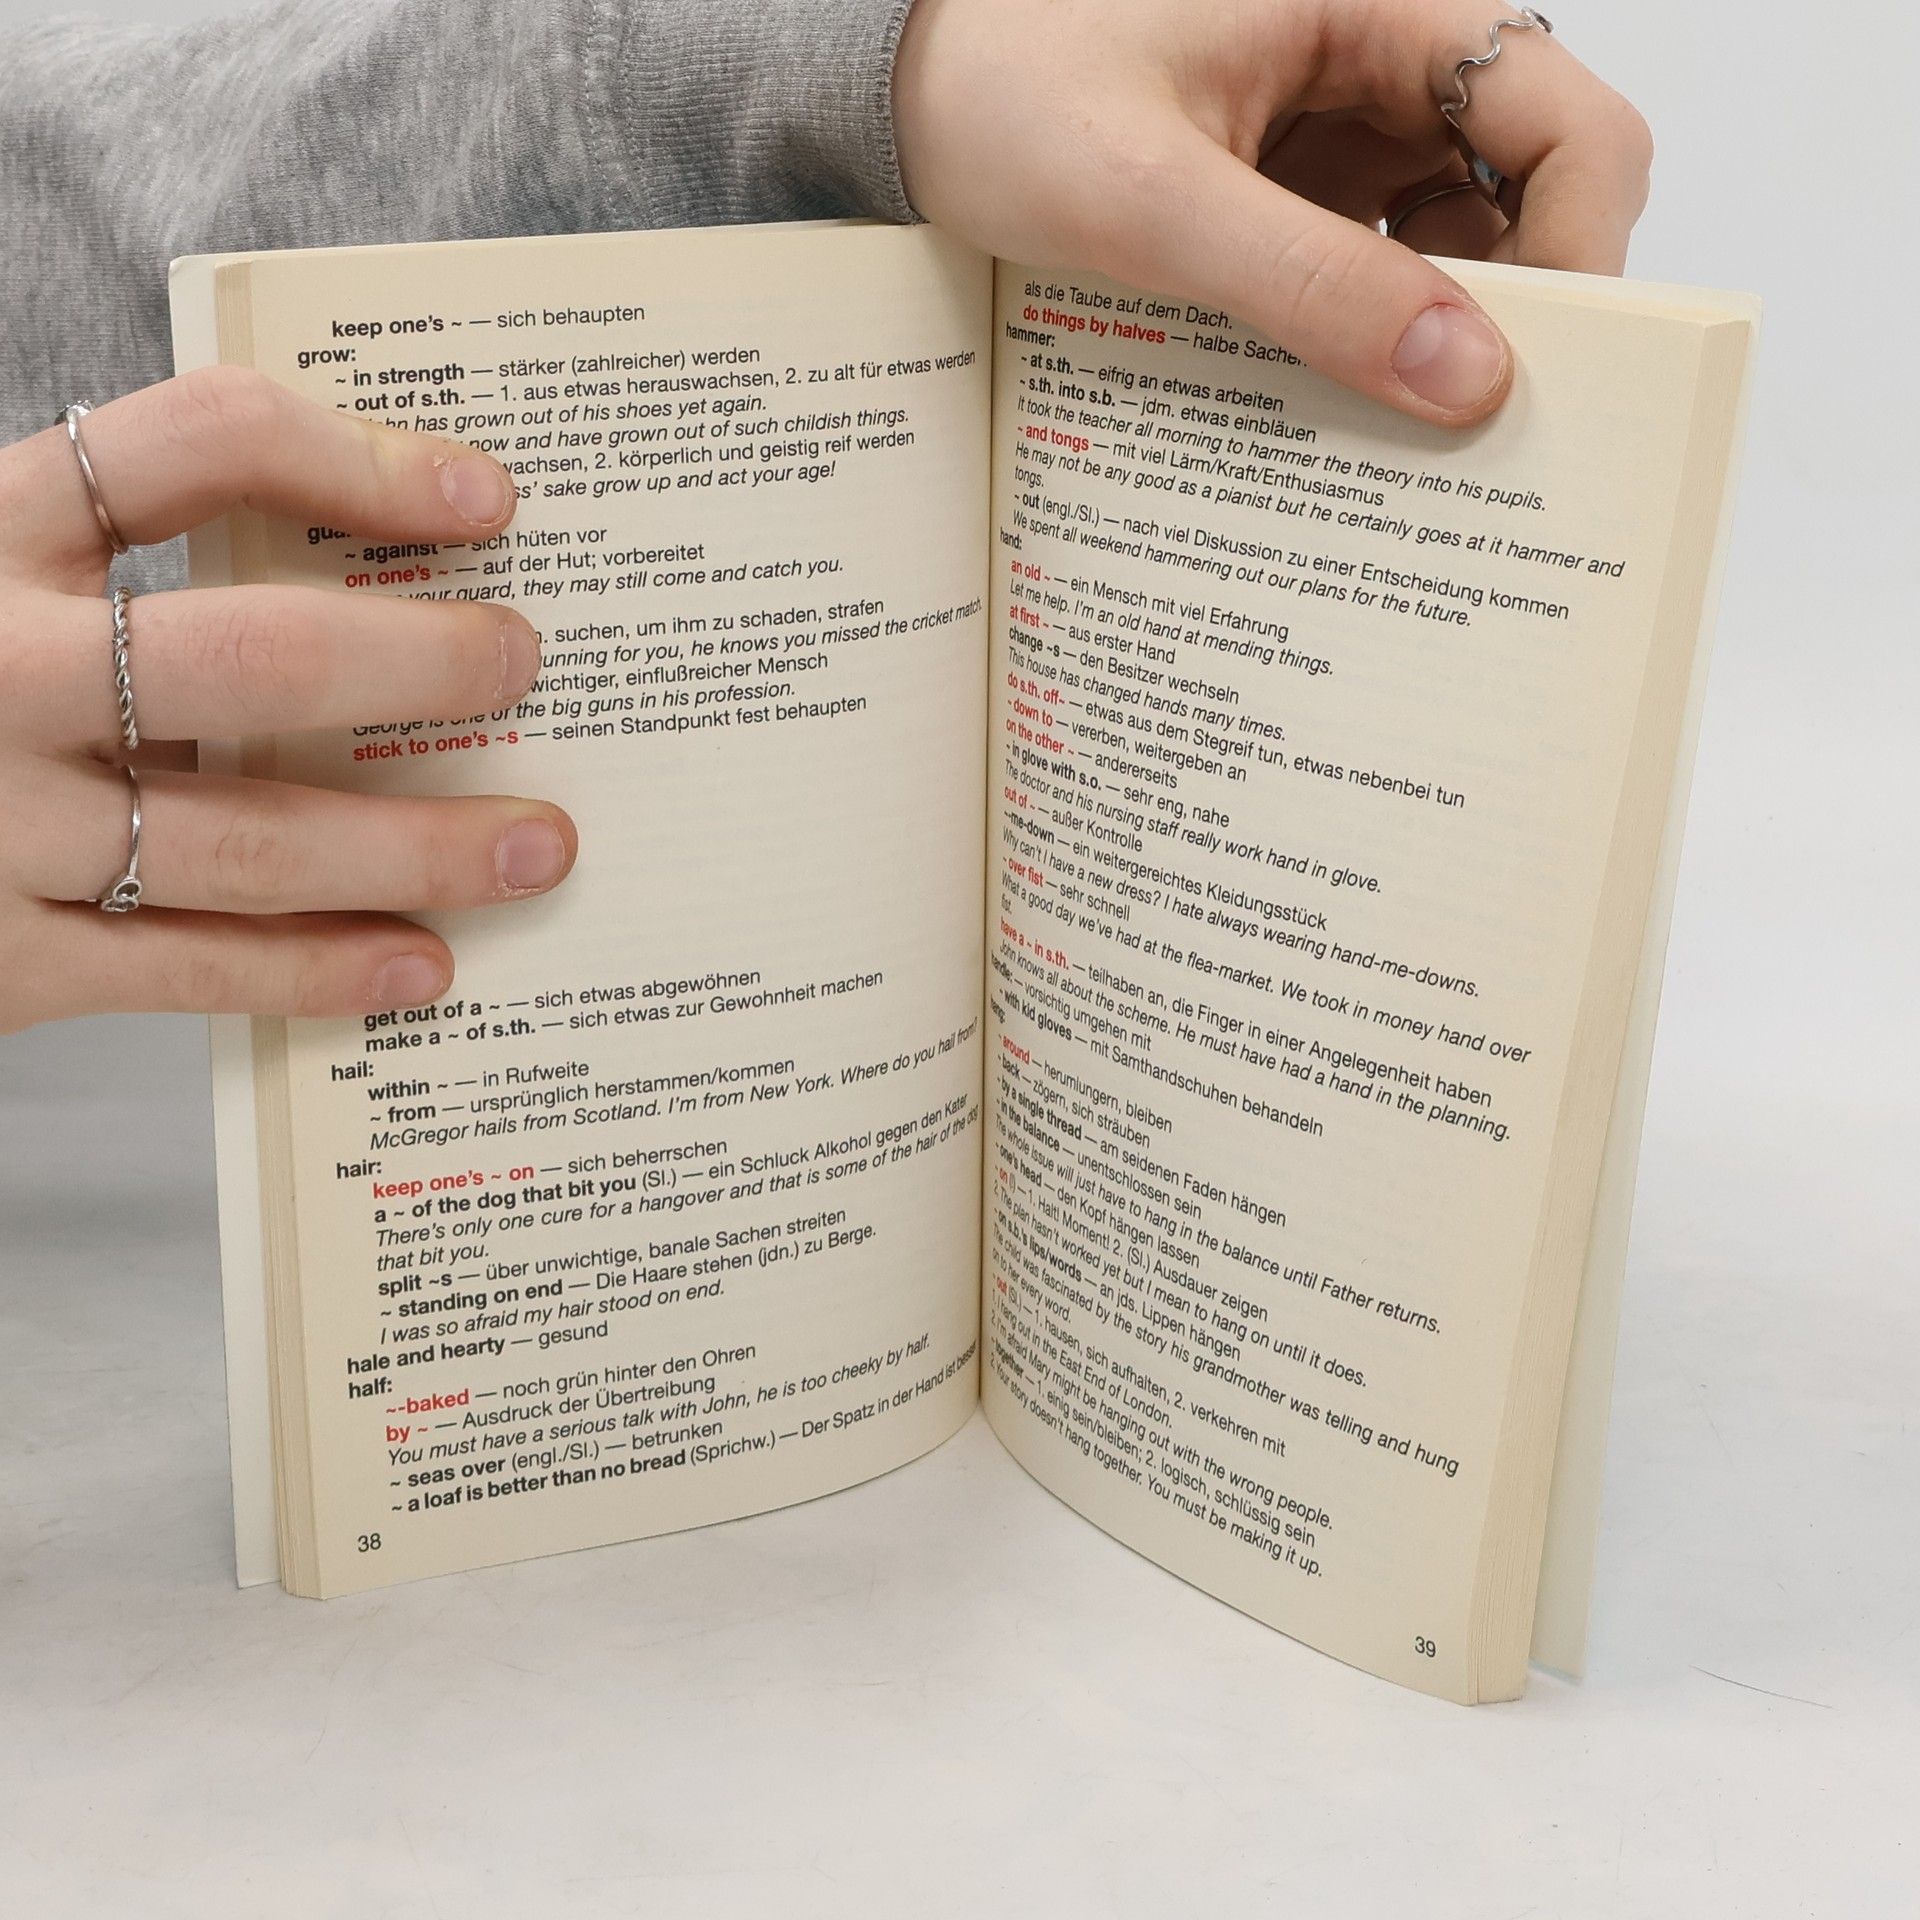 keep one's ~ — sich behaupten
grow:
~ in strength — stärker (zahlreicher) werden
~ out of s.th. — 1. aus etwas herauswachsen, 2. zu alt für etwas werden
has grown out of his shoes yet again.
now and have grown out of such childish things.
2. körperlich und geistig reif werden
sake grow up and act your age!
~ against — sich hüten vor
on one's ~ — auf der Hut; vorbereitet
your guard, they may still come and catch you.
suchen, um ihm zu schaden, strafen
for you, he knows you missed the cricket match.
wichtiger, einflußreicher Mensch
George is one of the big guns in his profession.
stick to one's ~s — seinen Standpunkt fest behaupten
get out of a ~ — sich etwas abgewöhnen
make a ~ of s.th. — sich etwas zur Gewohnheit machen
hail:
within ~ — in Rufweite
~ from — ursprünglich herstammen/kommen
McGregor hails from Scotland. I'm from New York. Where do you hail from?
hair:
keep one's ~ on — sich beherrschen
a ~ of the dog that bit you (Sl.) — ein Schluck Alkohol gegen den Kater
There's only one cure for a hangover and that is some of the hair of the dog
that bit you.
split ~s — über unwichtige, banale Sachen streiten
~ standing on end — Die Haare stehen (jdn.) zu Berge.
I was so afraid my hair stood on end.
hale and hearty — gesund
half:
~-baked — noch grün hinter den Ohren
by ~ — Ausdruck der Übertreibung
You must have a serious talk with John, he is too cheeky by half.
~ seas over (engl./Sl.) — betrunken
~ a loaf is better than no bread (Sprichw.) — Der Spatz in der Hand ist besser
38
als die Taube auf dem Dach.
do things by halves — halbe
hammer:
~ at s.th. — eifrig an etwas arbeiten
~ s.th. into s.b. — jdm. etwas einbläuen
It took the teacher all morning to hammer the theory into his pupils.
~ and tongs — mit viel Lärm/Kraft/Enthusiasmus
He may not be any good as a pianist but he certainly goes at it hammer and
tongs.
~ out (engl./Sl.) — nach viel Diskussion zu einer Entscheidung kommen
We spent all weekend hammering out our plans for the future.
hand:
an old ~ — ein Mensch mit viel Erfahrung
Let me help. I'm an old hand at mending things.
at first ~ — aus erster Hand
change ~s — den Besitzer wechseln
This house has changed hands many times.
do s.th. off~ — etwas aus dem Stegreif tun, etwas nebenbei tun
~ down to — vererben, weitergeben an
on the other ~ — andererseits
~ in glove with s.o. — sehr eng, nahe
The doctor and his nursing staff really work hand in glove.
out of ~ — außer Kontrolle
~-me-down — ein weitergereichtes Kleidungsstück
Why can't I have a new dress? I hate always wearing hand-me-downs.
~ over fist — sehr schnell
What a good day we've had at the flea-market. We took in money hand over
fist.
have a ~ in s.th. — teilhaben an, die Finger in einer Angelegenheit haben
John knows all about the scheme. He must have had a hand in the planning.
handle: — vorsichtig umgehen mit
~ with kid gloves — mit Samthandschuhen behandeln
hang:
~ around — herumlungern, bleiben
~ back — zögern, sich sträuben
~ by a single thread — am seidenen Faden hängen
~ in the balance — unentschlossen sein
The whole issue will just have to hang in the balance until Father returns.
~ one's head — den Kopf hängen lassen
~ on (!) — 1. Halt! Moment! 2. (Sl.) Ausdauer zeigen
2. The plan hasn't worked yet but I mean to hang on until it does.
~ on s.b.'s lips/words — an jds. Lippen hängen
The child was fascinated by the story his grandmother was telling and hung
on to her every word.
~ out (Sl.) — 1. hausen, sich aufhalten, 2. verkehren mit
1. I hang out in the East End of London.
2. I'm afraid Mary might be hanging out with the wrong people.
~ together — 1. einig sein/bleiben; 2. logisch, schlüssig sein
2. Your story doesn't hang together. You must be making it up.
39